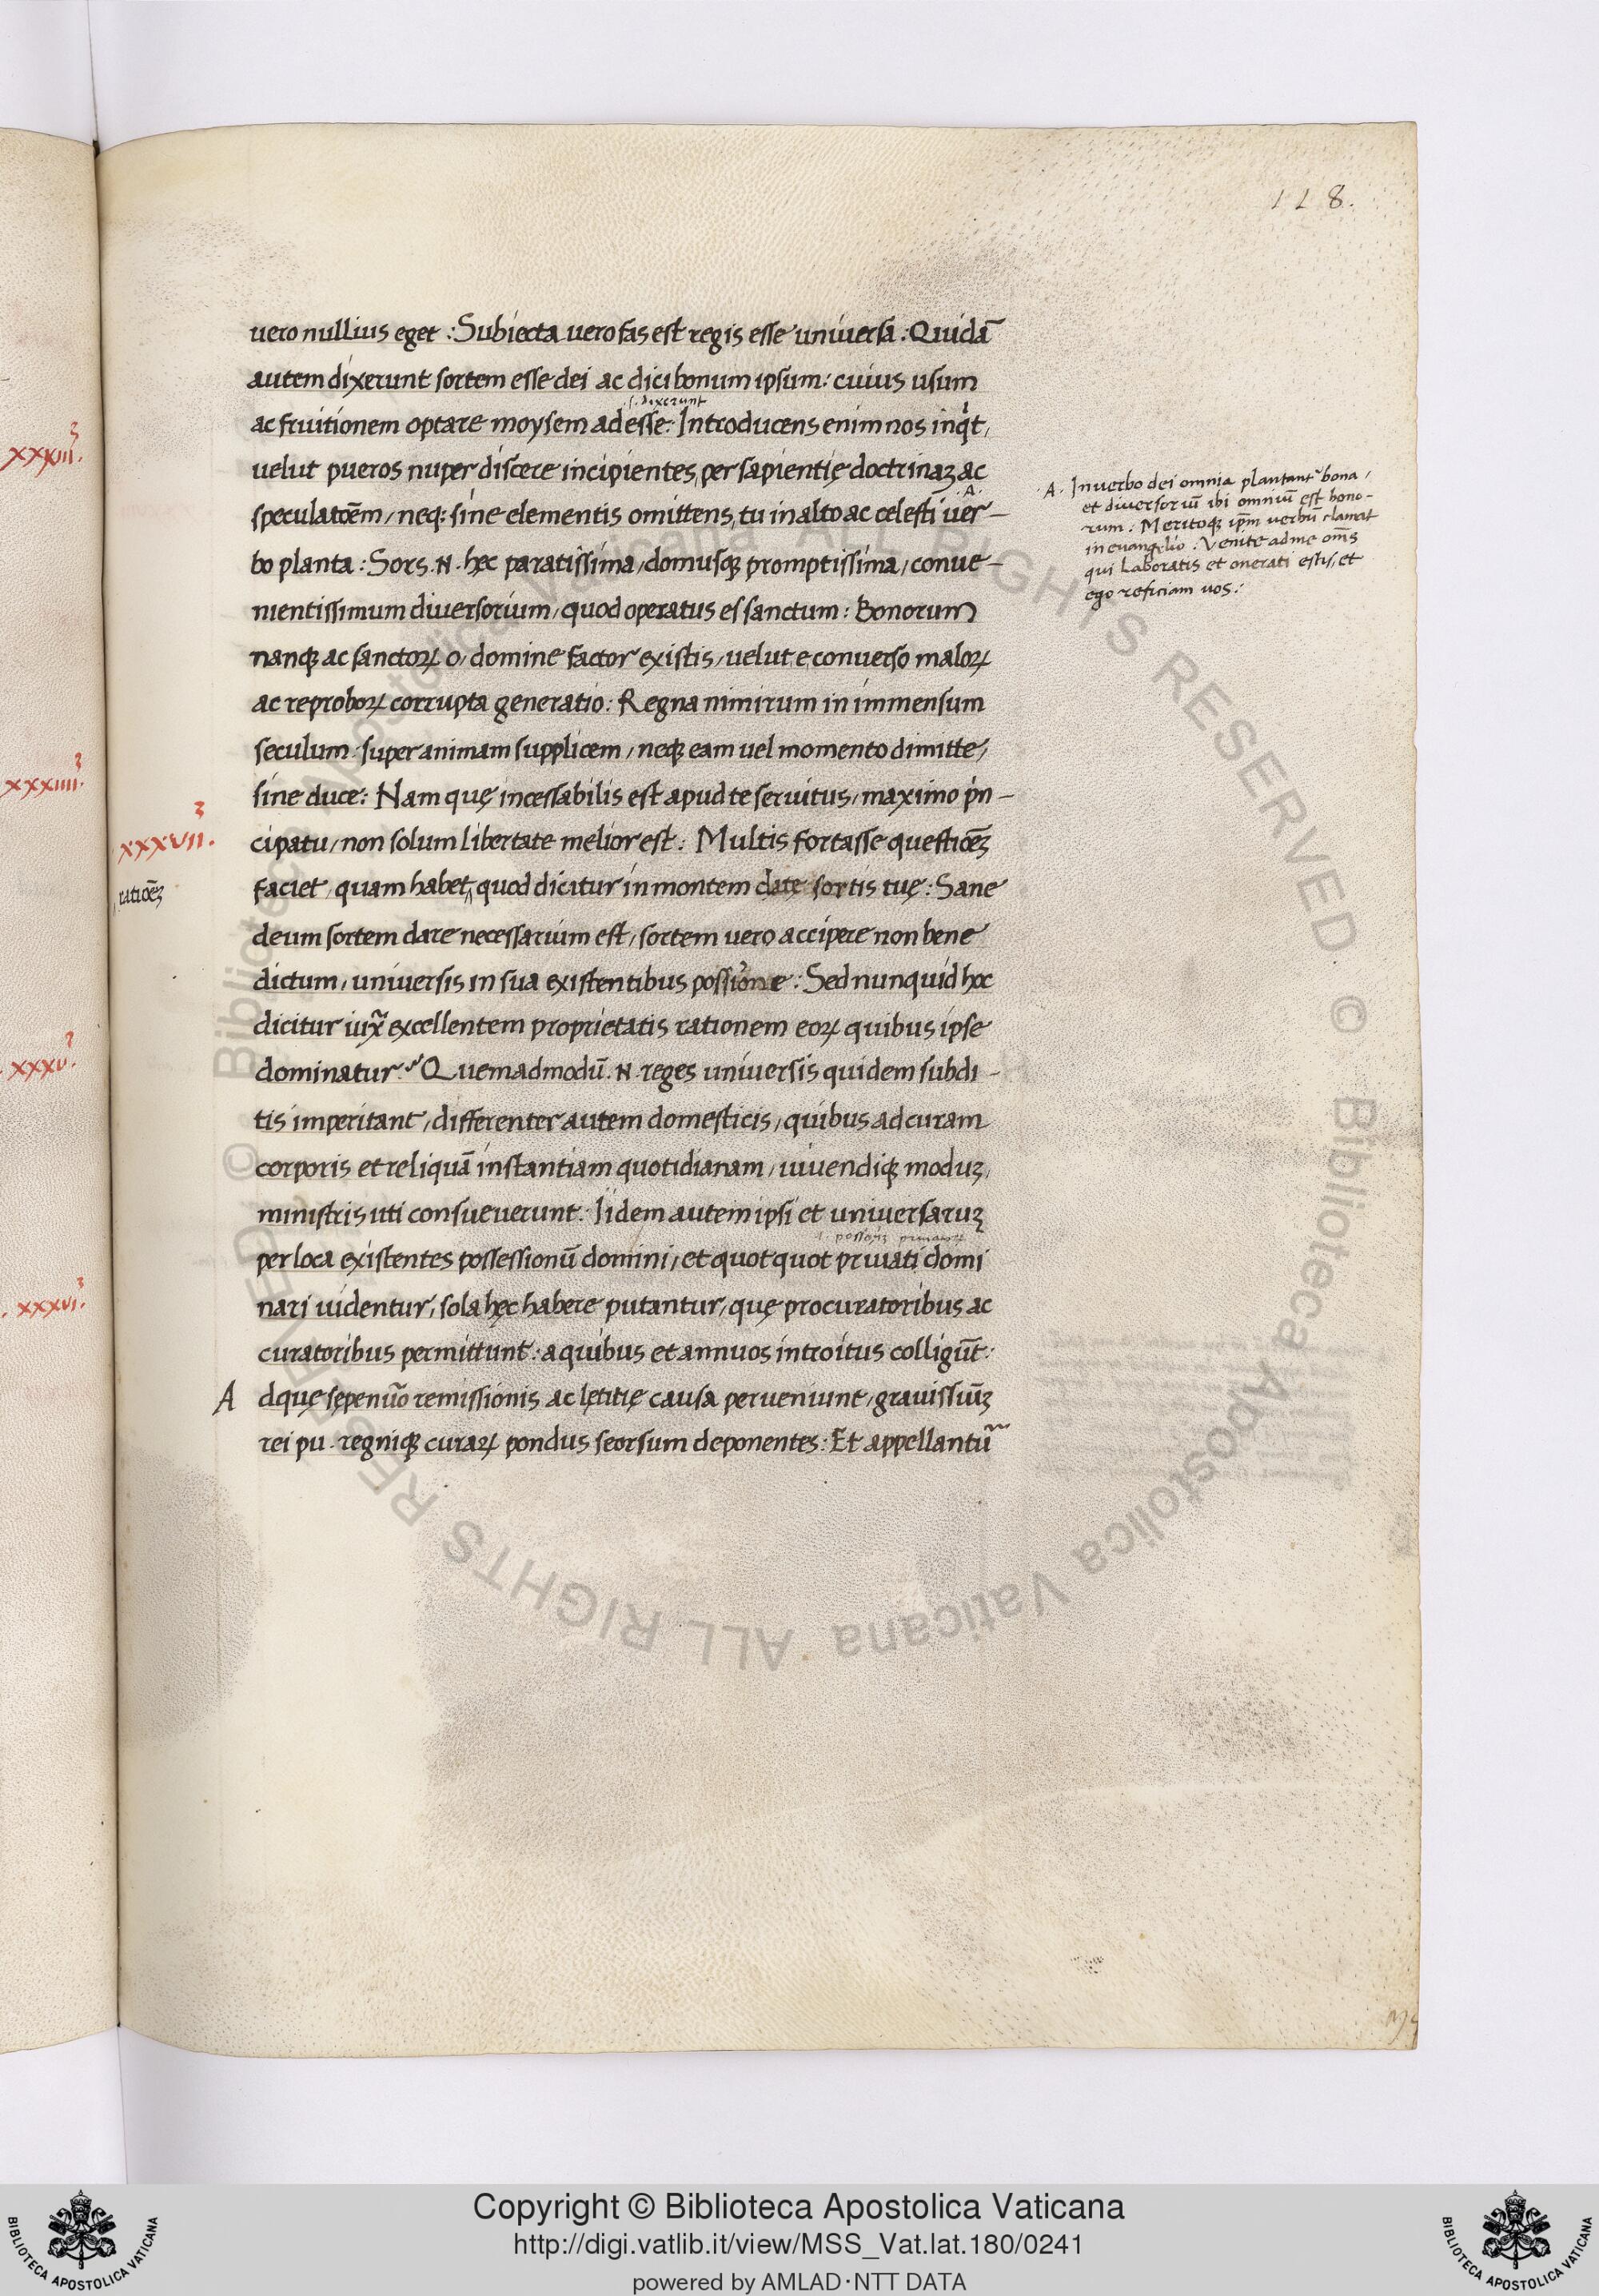 118.
vero nullius eget : Subiecta vero fas est regis esse universa : Quidā
autem dixerunt sortem esse dei ac dici bonum ipsum : cuius usum
.s. dixerunt
ac fruitionem optare moysem adesse : Introducens enim nos inq̇t,
velut pueros nuper discere incipientes, per sapientię doctrinaꝫ ac
.A.
speculatōem, neq; sine elementis omittens, tu in alto ac celesti ver-
bo planta : Sors .N. hęc paratissima, domusqꝫ promptissima, conue-
nientissimum diversorium, quod operatus es sanctum : Bonorum
nanqꝫ ac sanctoꝝ o, domine factor existis, velut e converso maloꝝ
ac reproboꝝ corrupta generatio : Regna nimirum in immensum
seculum super animam supplicem, neqꝫ eam vel momento dimitte,
sine duce : Nam quę incessabilis est apud te servitus, maximo pṙn-
XXXVII.
cipatu, non solum libertate melior est : Multis fortasse questiōeꝫ
ratiōeꝫ
faciet, quam habet, quod dicitur in montem date sortis tuę : Sane
deum sortem dare necessarium est, sortem vero accipere non bene
dictum, universis in sua existentibus possiōne : Sed nunquid hoc
dicitur iuxͣ excellentem proprietatis rationem eoꝝ quibus ipse
dominatur? Quemadmodū .N. reges universis quidem subdi-
tis imperitant, differenter autem domesticis, quibus ad curam
corporis et reliquā instantiam quotidianam, vivendiqꝫ moduꝫ,
ministris uti consueverunt. Iidem autem ipsi et universaruꝫ
per loca existentes possessionū domini, et quotquot privati domi
nari videntur, sola hęc habere putantur, quę procuratoribus ac
curatoribus permittunt : a quibus et annuos introitus colligūt :
A dquę sępenūo remissionis ac lętitię causa perveniunt, gravissiūꝫ
rei pu. regniqꝫ curaꝝ pondus seorsum deponentes : Et appellantu͂
.A. In verbo dei omnia plantantʳ bona,
et diversoriū ibi omniū est bono-
rum. Meritoqꝫ ipm̄ verbū clamat
in evangelio : Venite ad me om̄s
qui laboratis et onerati estis, et
ego reficiam vos :
XXXIII.
XXXIIII.
XXXV.
XXXVI.
© Biblioteca Apostolica Vaticana ALL RIGHTS RESERVED © Biblioteca Apostolica Vaticana ALL RIGHTS RESERVED
BIBLIOTECA APOSTOLICA VATICANA
Copyright © Biblioteca Apostolica Vaticana
http://digi.vatlib.it/view/MSS_Vat.lat.180/0241
powered by AMLAD·NTT DATA
BIBLIOTECA APOSTOLICA VATICANA